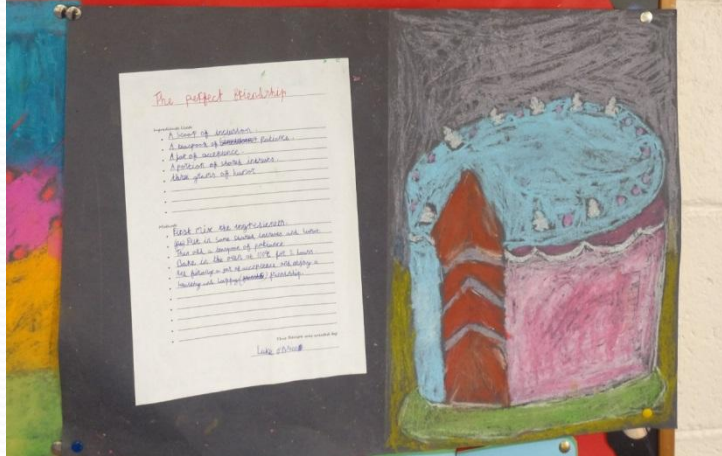 The perfect friendship
Ingredients List:
A scoop of inclusion.
A teaspoon of Patience.
A jot of acceptance.
A portion of shared interests.
three grams of humor
Method:
First mix the ingredients
Put in some shared interests and humor
Then add a teaspoon of patience
Bake in the oven at 200°c for 2 hours
a jot of acceptance and enjoy a
healthy and happy friendship.
This Recipe was created by
Luke